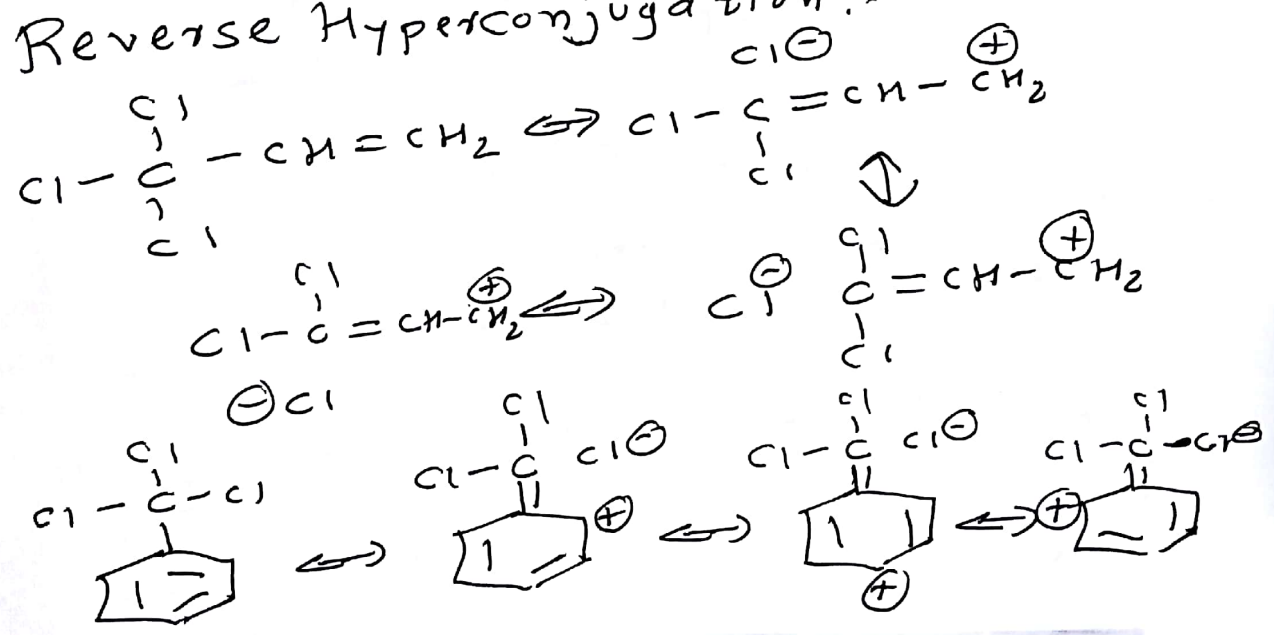 Reverse Hyperconjugation.
Cl Cl⊖ ⊕
Cl-C-CH=CH2 ⇔ Cl-C=CH-CH2
Cl Cl
⇕
Cl Cl ⊕
Cl-C=CH-CH2 ⇔ Cl⊖ C=CH-CH2
⊖Cl Cl
Cl Cl Cl Cl
Cl-C-Cl Cl-C Cl⊖ Cl-C Cl⊖ Cl-C-Cl⊖
⇔ ⊕ ⇔ ⇔ ⊕
⊕